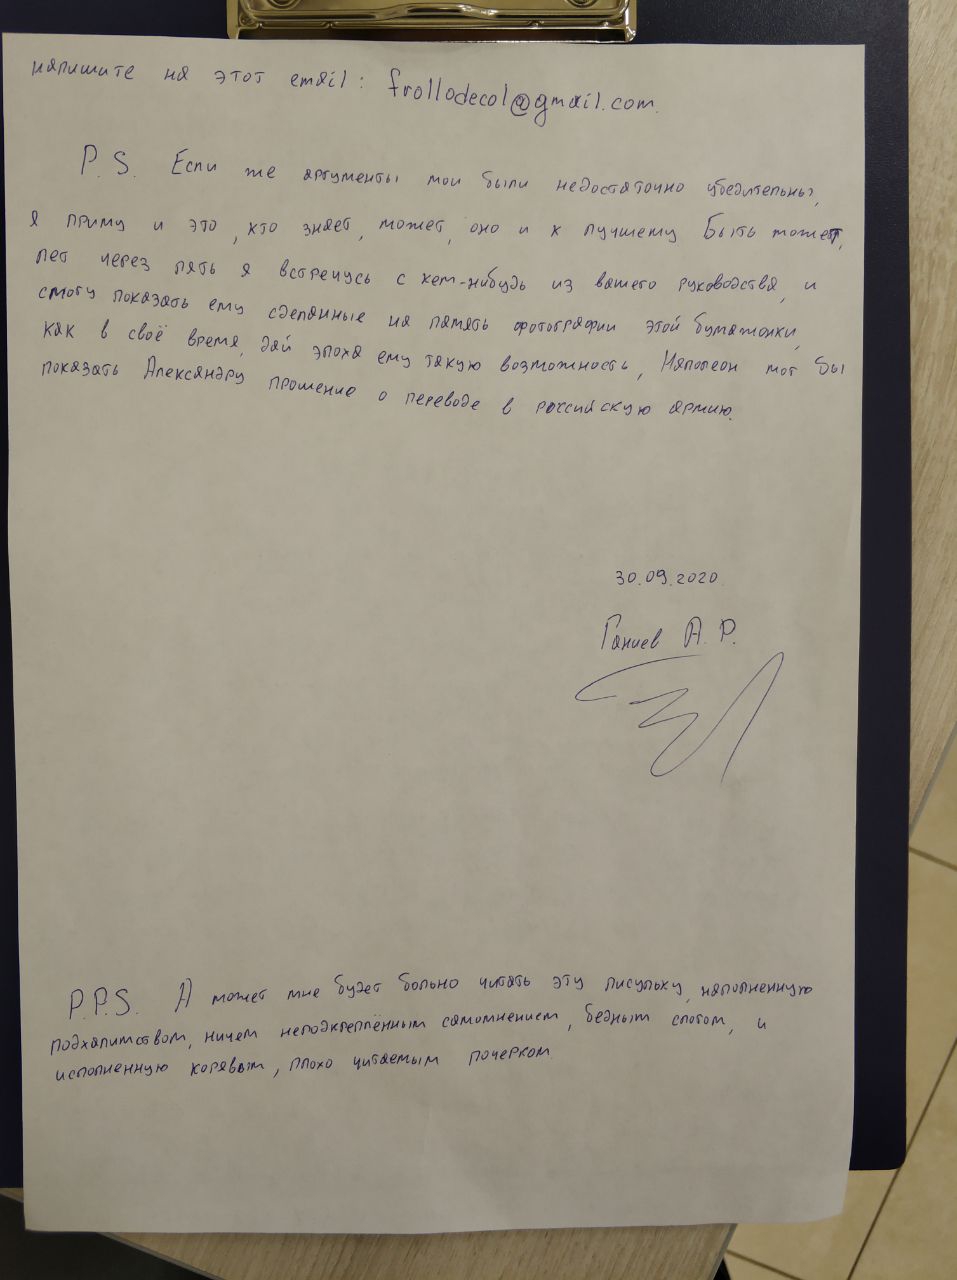 напишите на этот email: frollodecol@gmail.com.
P.S. Если же аргументы мои были недостаточно убедительны,
я приму и это, кто знает, может, оно и к лучшему. Быть может,
лет через пять я встречусь с кем-нибудь из вашего руководства, и
смогу показать ему сделанные на память фотографии этой бумажонки,
как в своё время, дай эпоха ему такую возможность, Наполеон мог бы
показать Александру прошение о переводе в российскую армию.
30.09.2020.
Ганиев А.Р.
P.P.S. А может мне будет больно читать эту писульку, наполненную
подхалимством, ничем неподкреплённым самомнением, бедным слогом, и
исполненную корявым, плохо читаемым почерком.